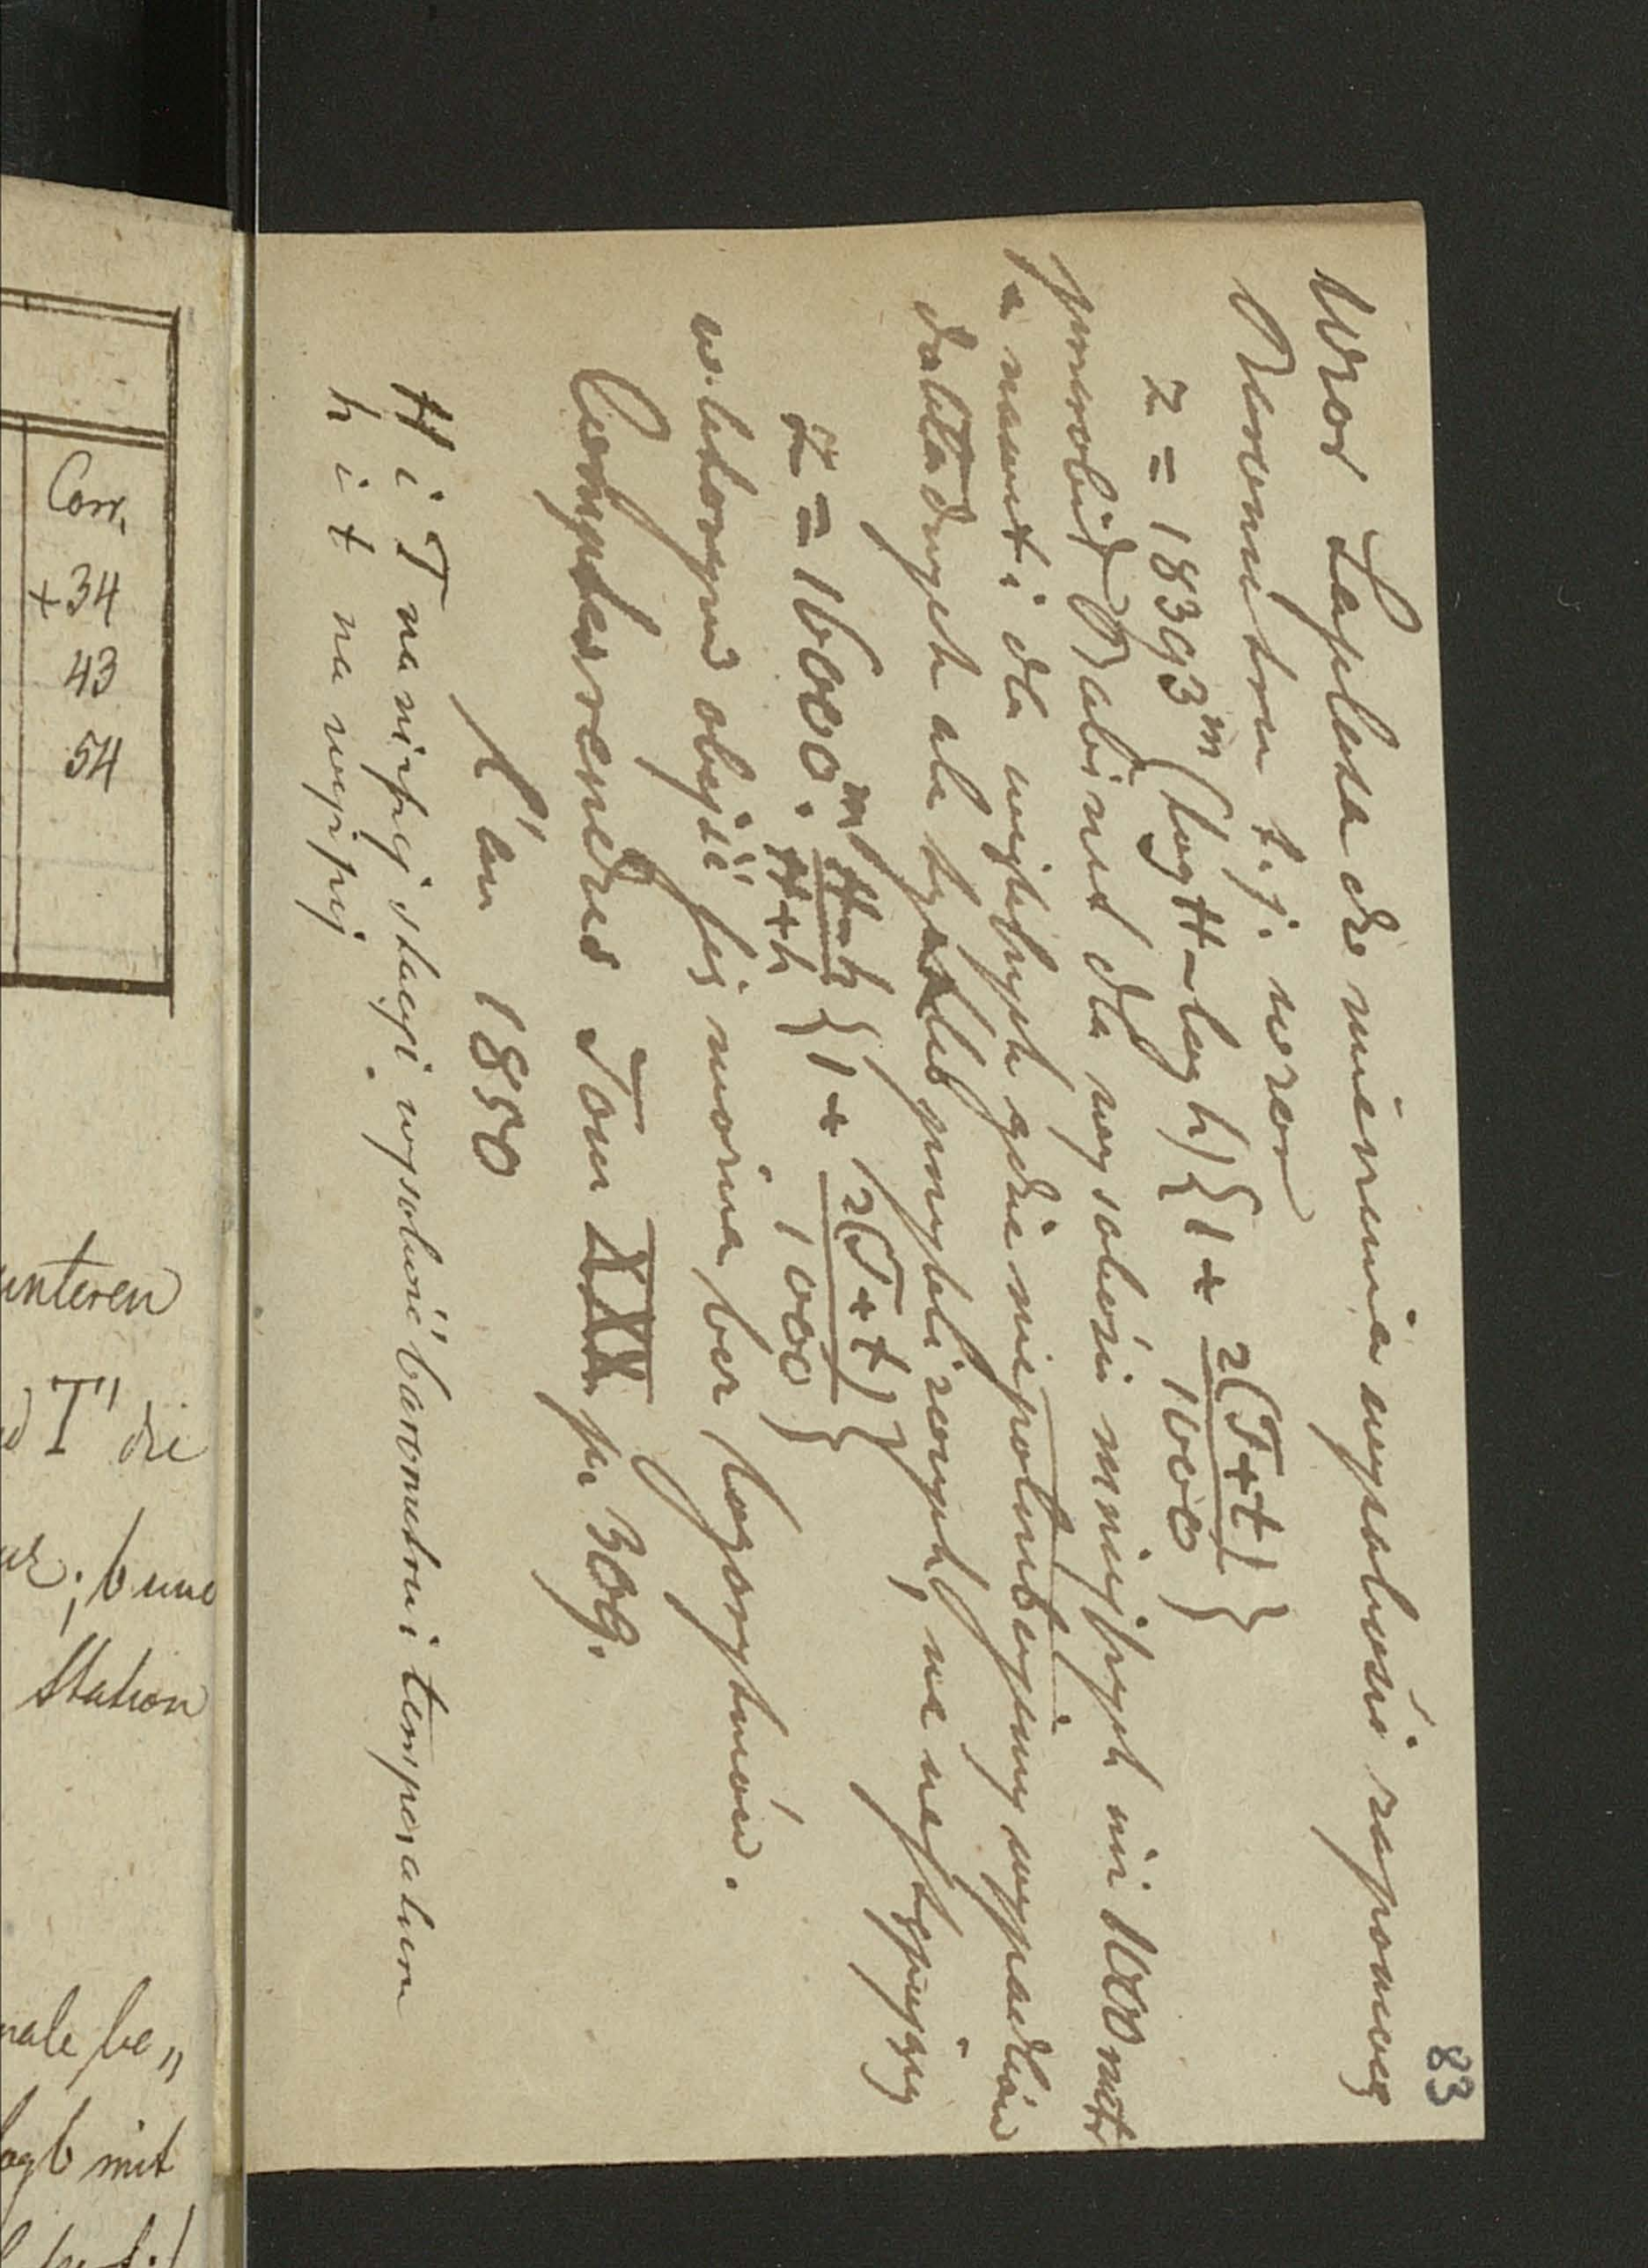 83
Wzor Laplasa do mierzenia wysokości za pomocą
Barometru t. j. wzor
z = 18393ᵐ (log H – log h) {1 + 2(T+t)/1000}
przerobił Babinet dla wysokości mniejszych niż 1000 metr
a nawet i dla większych gdzie nie potrzebujemy wypadków
dokładnych ale tylko przybliżonych, na następujący
z = 16000ᵐ. H–h/H+h {1 + 2(T+t)/1000}
w którym obyjść się można bez logarytmów.
Comptes rendus Tom XXX pr 309.
l'an 1850
H i T na niższej stacyi wysokość barometru i temperatura
h i t na wyższej
Corr.
+34
43
54
unteren
T" die
; b und
Station
male be„
log b mit